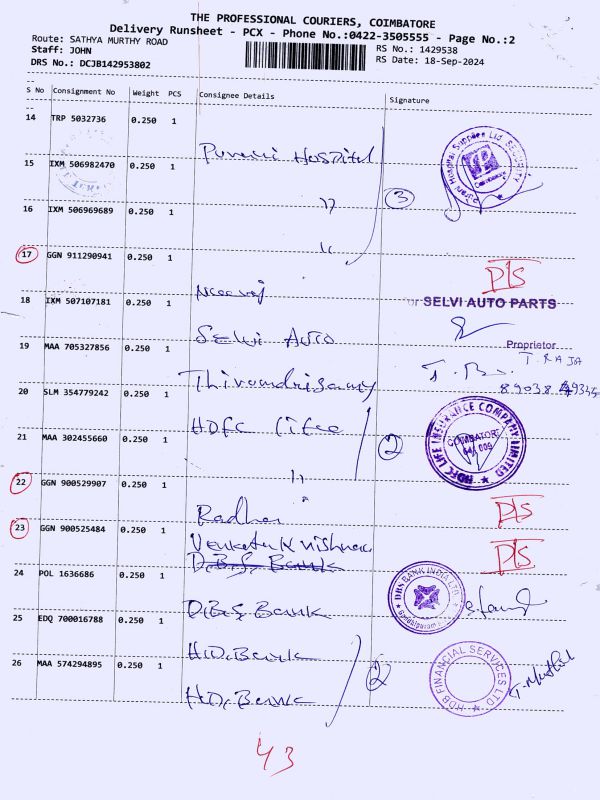 THE PROFESSIONAL COURIERS, COIMBATORE
Delivery Runsheet - PCX - Phone No.:0422-3505555 - Page No.:2
Route: SATHYA MURTHY ROAD
Staff: JOHN
DRS No.: DCJB142953802
RS No.: 1429538
RS Date: 18-Sep-2024
S No Consignment No Weight PCS Consignee Details Signature
14 TRP 5032736 0.250 1
Hospital
15 IXM 506982470 0.250 1
3
16 IXM 506969689 0.250 1
17 GGN 911290941 0.250 1
D/S
18 IXM 507107181 0.250 1
For SELVI AUTO PARTS
Selvi Auto
Proprietor
19 MAA 705327856 0.250 1
T. RAJA
20 SLM 354779242 0.250 1
HDFC Life
HDFC LIFE INSURANCE COMPANY LIMITED
COIMBATORE
641 009
21 MAA 302455660 0.250 1
2
22 GGN 900529907 0.250 1
D/S
23 GGN 900525484 0.250 1
D/S
D.B.S. Bank
24 POL 1636686 0.250 1
D.B.S. Bank
DBS BANK INDIA LTD.
25 EDQ 700016788 0.250 1
H.D. Bank
26 MAA 574294895 0.250 1
2
HDB FINANCIAL SERVICES LTD
H.D. Bank
43